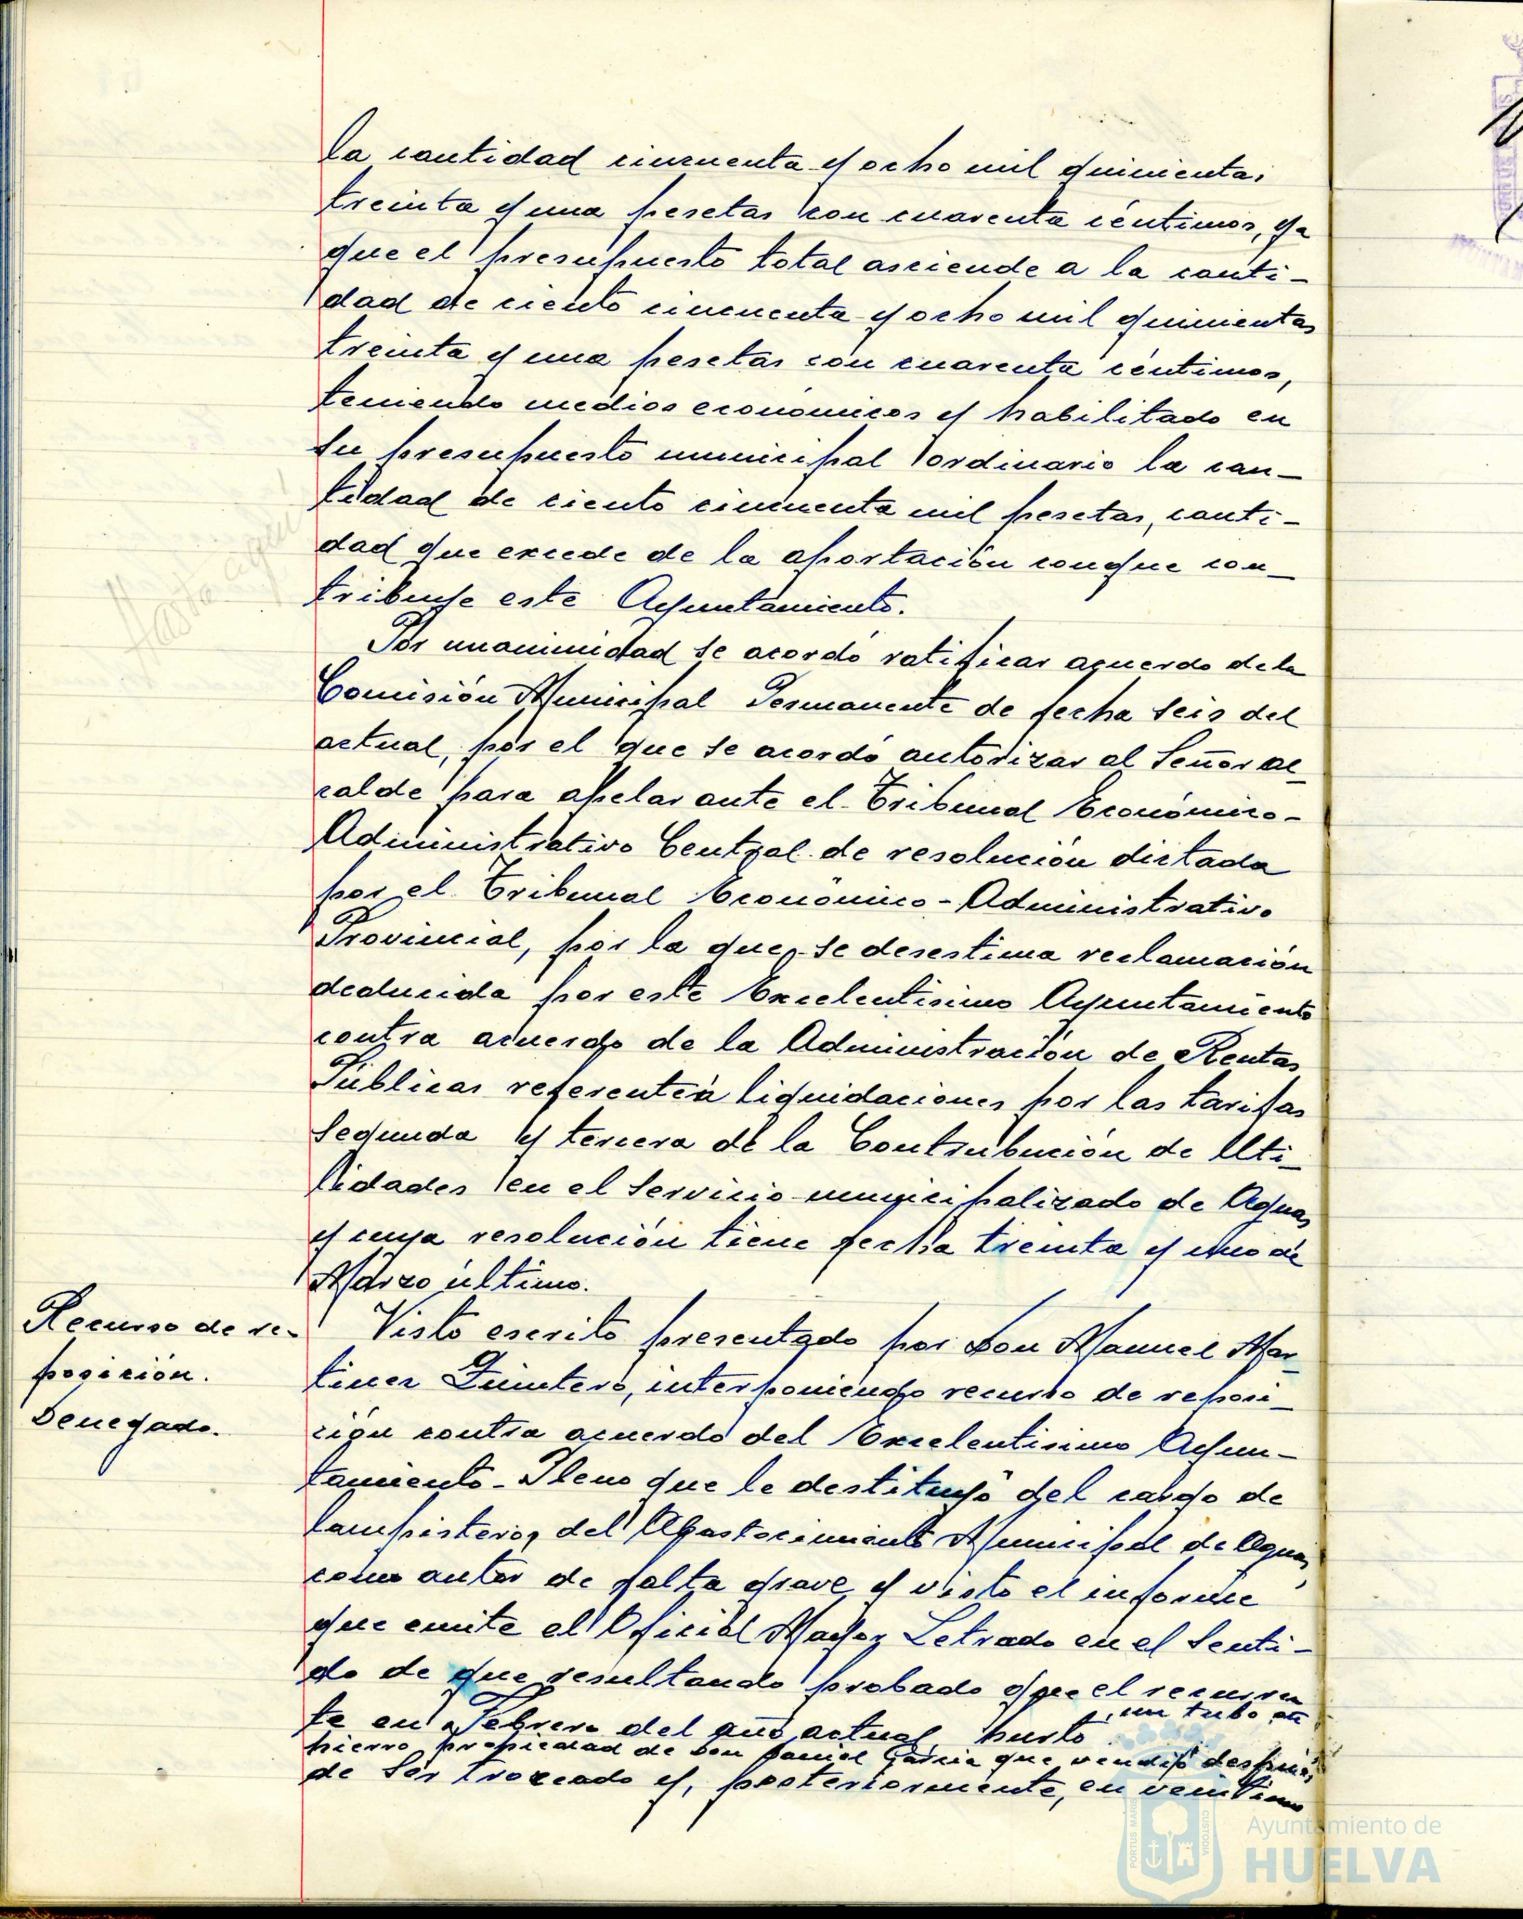 la cantidad cincuenta y ocho mil quinientas
treinta y una pesetas con cuarenta céntimos, ya
que el presupuesto total asciende a la canti-
dad de ciento cincuenta y ocho mil quinientas
treinta y una pesetas con cuarenta céntimos,
teniendo medios económicos y habilitado en
su presupuesto municipal ordinario la can-
tidad de ciento cincuenta mil pesetas, canti-
dad que excede de la aportación conque con-
tribuye este Ayuntamiento.
Hasta aquí
Por unanimidad se acordó ratificar acuerdo de la
Comisión Municipal Permanente de fecha seis del
actual, por el que se acordó autorizar al Señor Al-
calde para apelar ante el Tribunal Económico-
Administrativo Central de resolución dictada
por el Tribunal Económico-Administrativo
Provincial, por la que se desestima reclamación
deducida por este Excelentísimo Ayuntamiento
contra acuerdo de la Administración de Rentas
Públicas referente a liquidaciones por las tarifas
segunda y tercera de la Contribución de Uti-
lidades en el servicio municipalizado de Aguas
y cuya resolución tiene fecha treinta y uno de
Marzo último.
Recurso de re-
posición.
Denegado.
Visto escrito presentado por Don Manuel Mar-
tinez Quintero, interponiendo recurso de reposi-
ción contra acuerdo del Excelentísimo Ayun-
tamiento-Pleno que le destituyó del cargo de
lampistero, del Abastecimiento Municipal de Aguas,
como autor de falta grave y visto el informe
que emite el Oficial Mayor Letrado en el senti-
do de que resultando probado que el recurren
te en Febrero del año actual, hurtó un tubo de
hierro propiedad de Don Daniel García que vendió después
de ser troceado y, posteriormente, en veintiuno
PORTUS MARIS
CUSTODIA
Ayuntamiento de
HUELVA